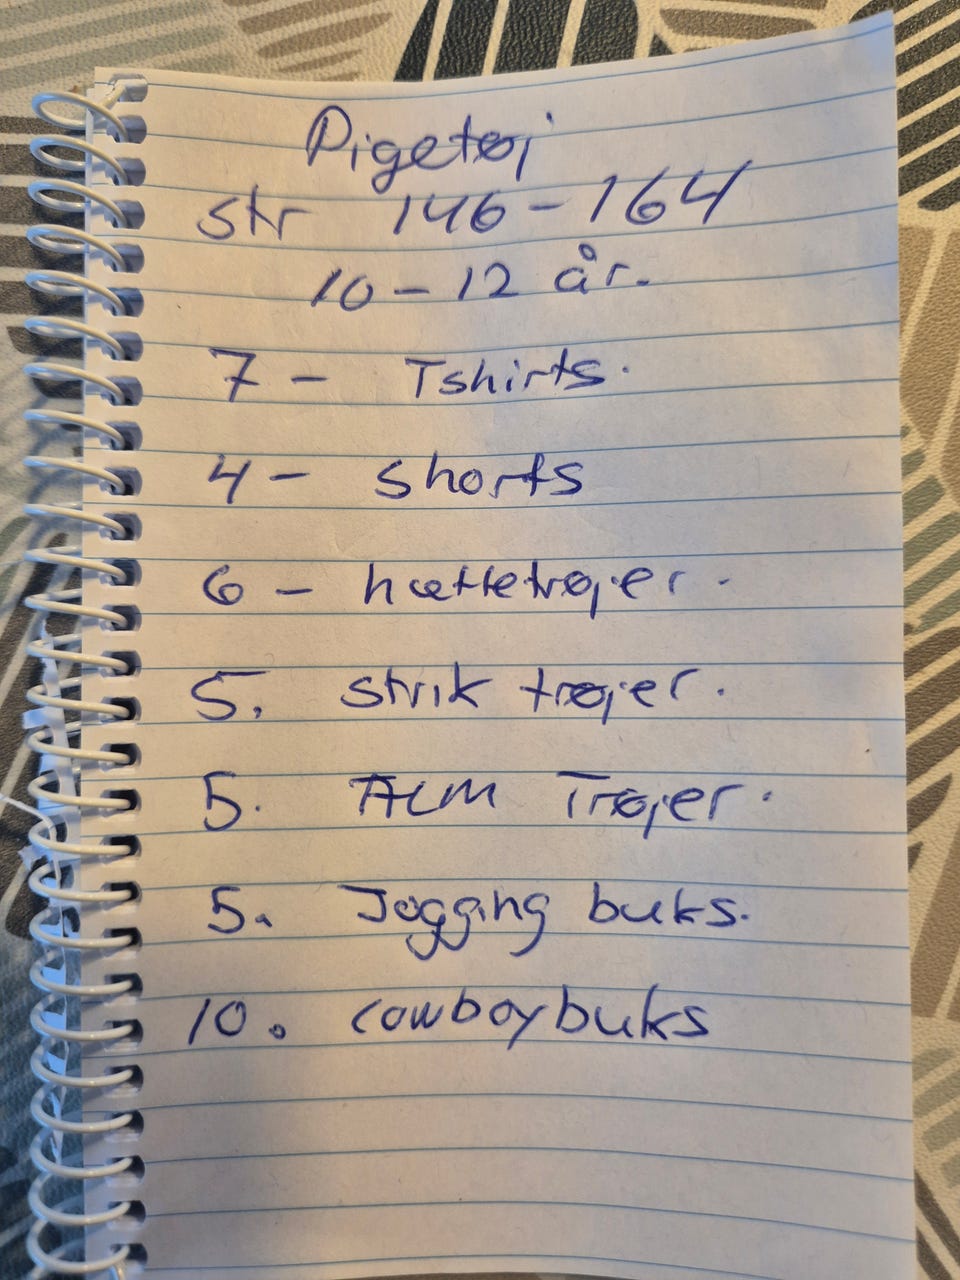 Pigetøj
str 146-164
10-12 år.
7 - Tshirts.
4 - shorts
6 - hættetrøjer.
5. strik trøjer.
5. ALM Trøjer.
5. Jogging buks.
10. cowboybuks